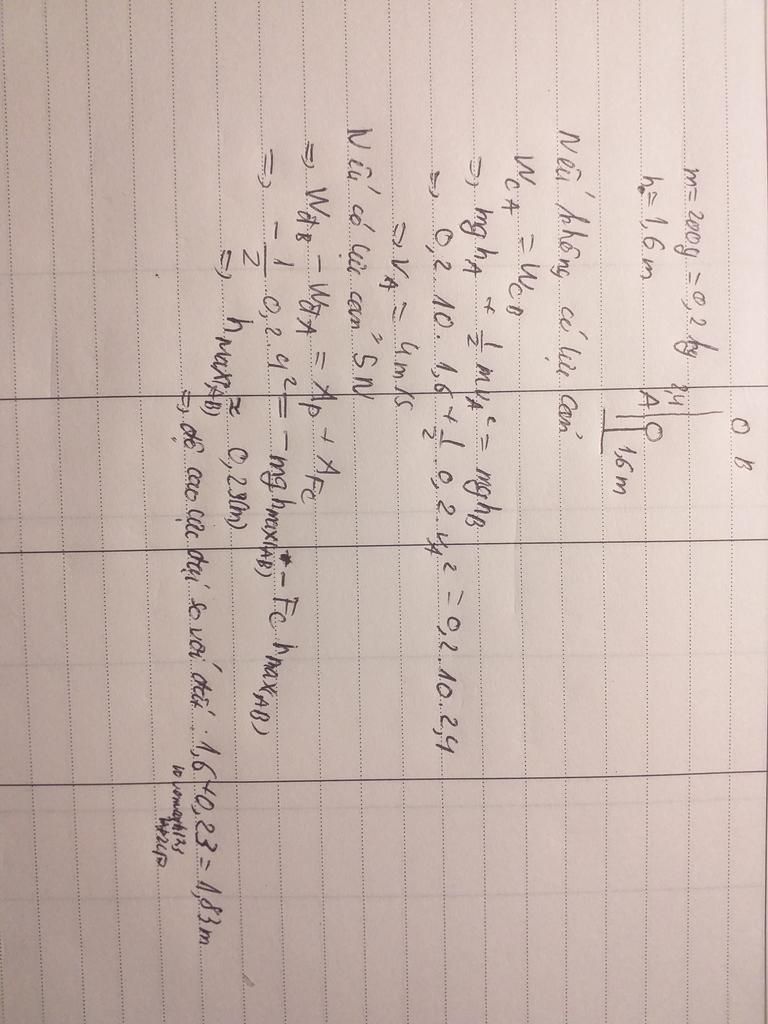 m = 200g = 0,2 kg
h = 1,6 m
O B
2,4
A O
1,6m
Nếu không có lực cản
WcA = WcB
=> mghA + 1/2 mvA² = mghB
=> 0,2.10.1,6 + 1/2 0,2.vA² = 0,2.10.2,4
=> vA = 4m/s
Nếu có lực cản 5N
=> WđB - WđA = Ap + AFc
=> -1/2 0,2.4² = -mghmax(AB) - Fc hmax(AB)
=> hmax(AB) ≈ 0,23(m)
=> độ cao cực đại so với đất: 1,6+0,23 = 1,83m